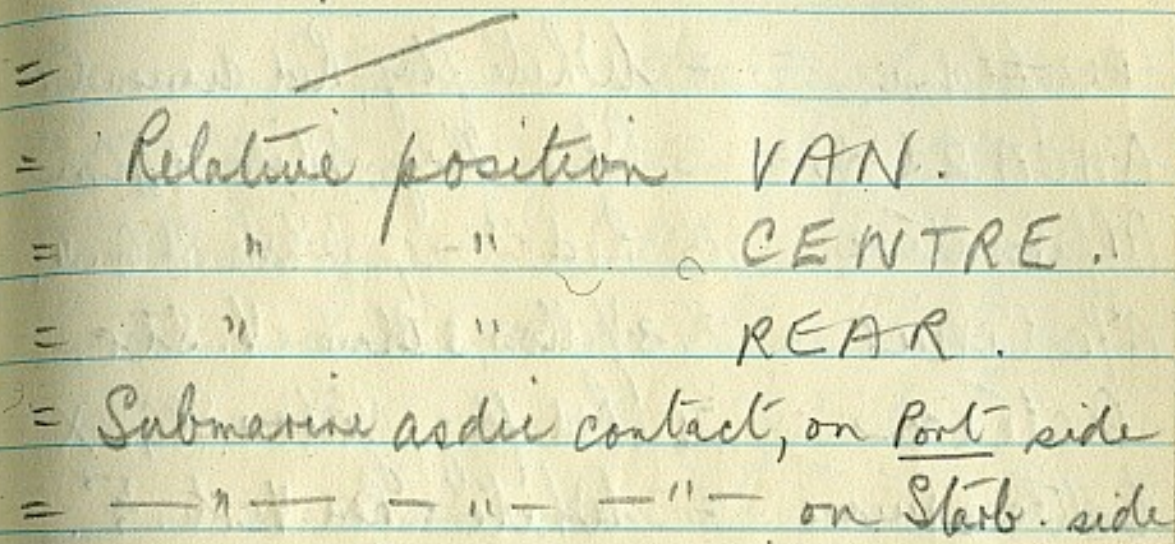 =
= Relative position VAN.
= " " CENTRE.
= " " REAR.
= Submarine asdic contact, on Port side
= — " — — " — — " — on Starb. side